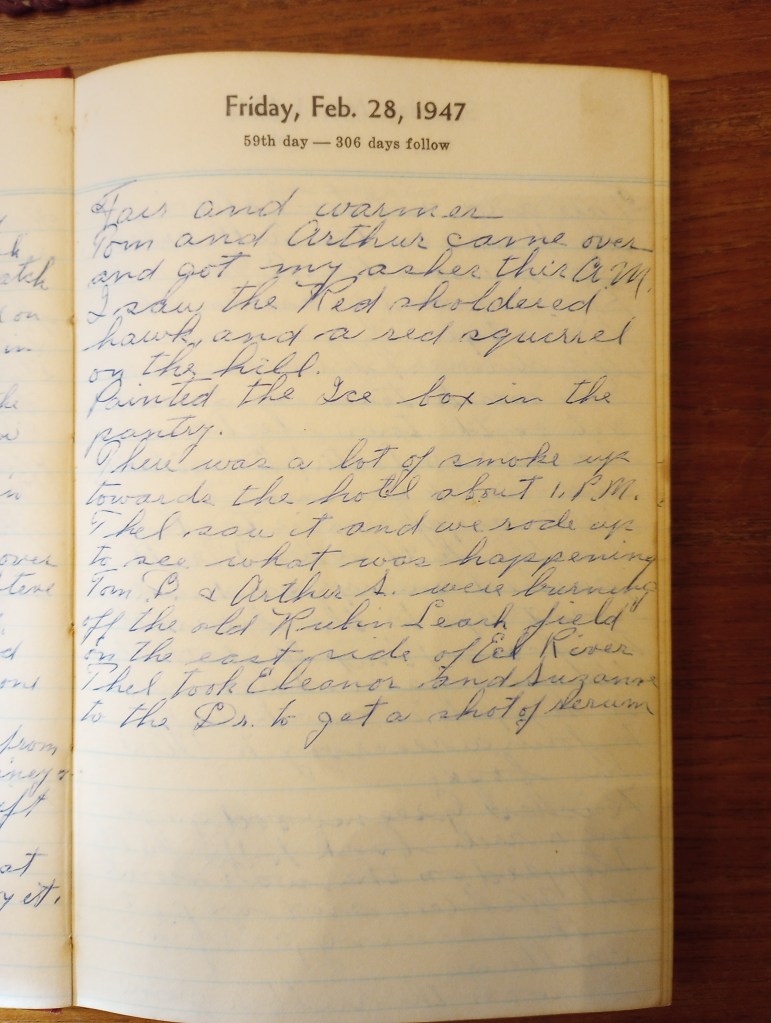 Friday, Feb. 28, 1947
59th day — 306 days follow
Fair and warmer
Tom and Arthur came over
and got my ashes this A.M.
I saw the Red sholdered
hawk and a red squirrel
on the hill.
Painted the Ice box in the
pantry.
There was a lot of smoke up
towards the hotel about 1. P.M.
Thel saw it and we rode up
to see what was happening
Tom B. & Arthur S. were burning
off the old Rubin Leach field
on the east side of Eel River
Thel took Eleanor and Suzanne
to the Dr. to get a shot of serum
atch
on
in
he
in
over
Steve
from
at
yet.